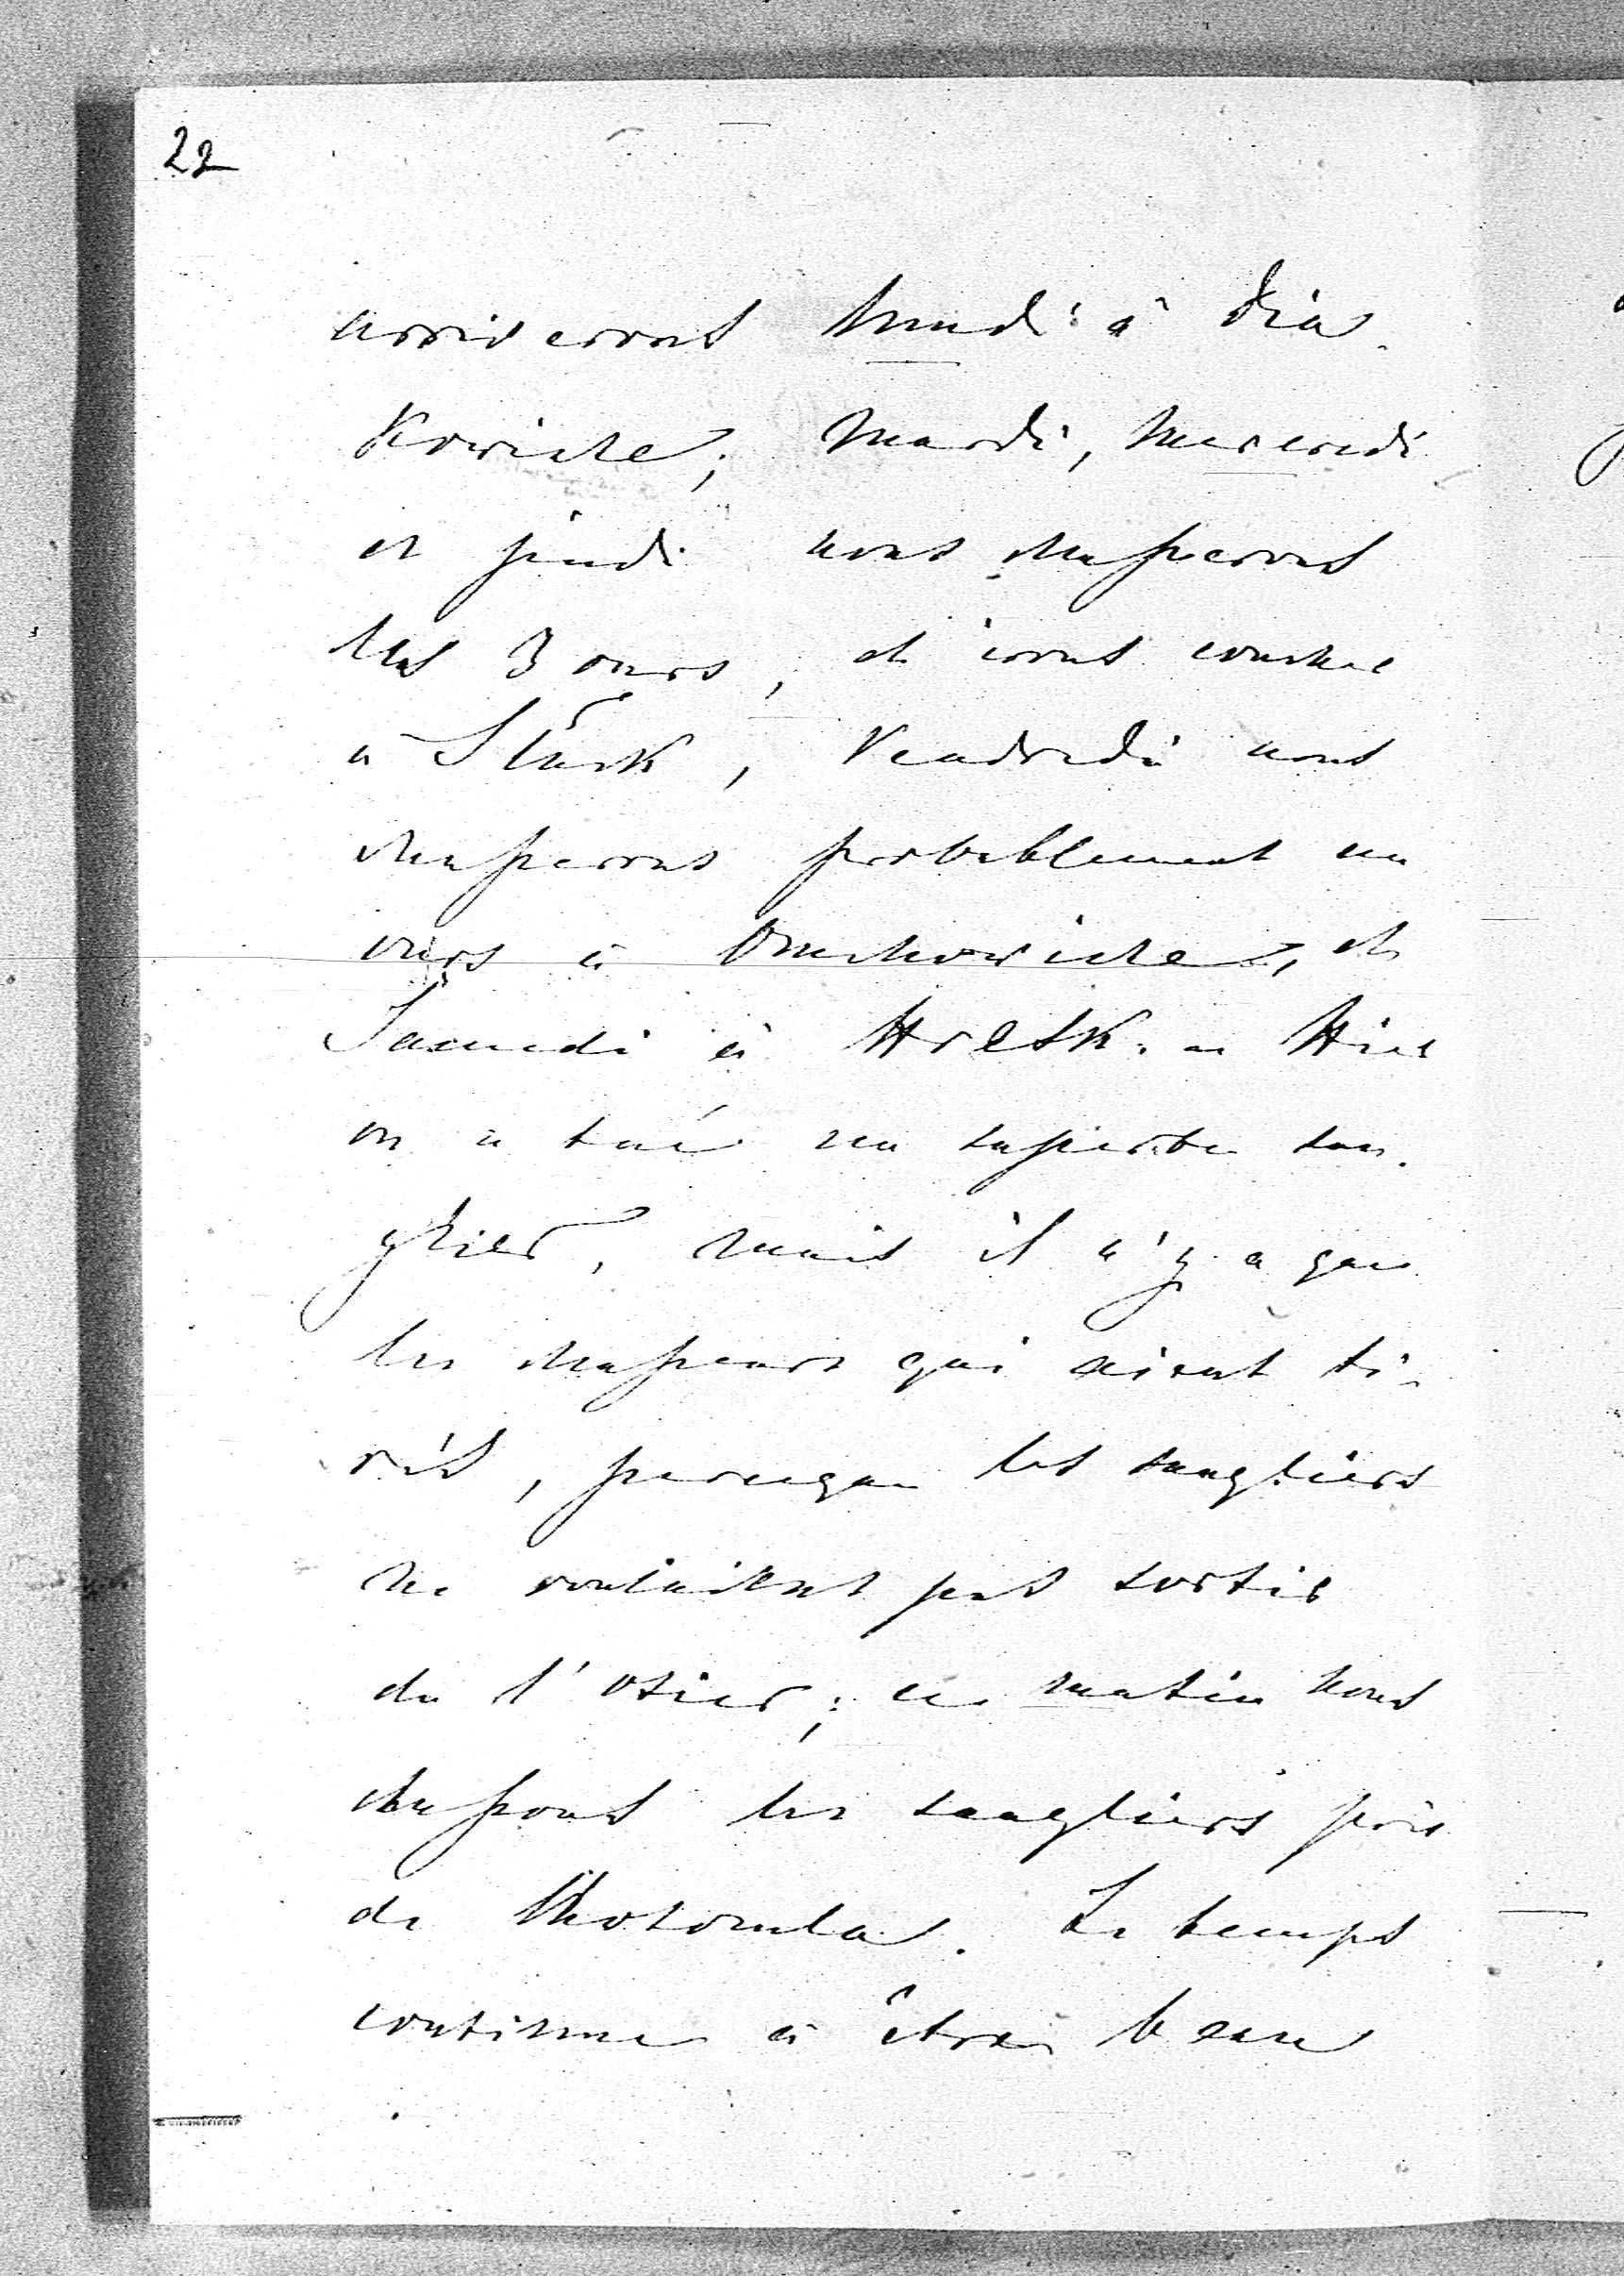 22
arriverons lundi à Dia-
kowicze; Mardi, Mercredi
et jeudi nous chasserons
les 3 ours, et irons coucher
à Sluck, Vendredi nous
chasserons probablement un
ours à Omhowicze, et
Samedi à Hresk. – Hier
on a tué un superbe san-
glier, mais il n'y a que
les chasseurs qui aient ti-
rés, parceque les sangliers
ne voulaient pas sortir
de l'osier; ce matin nous
chassons les sangliers près
de . Le temps
continue à être beau